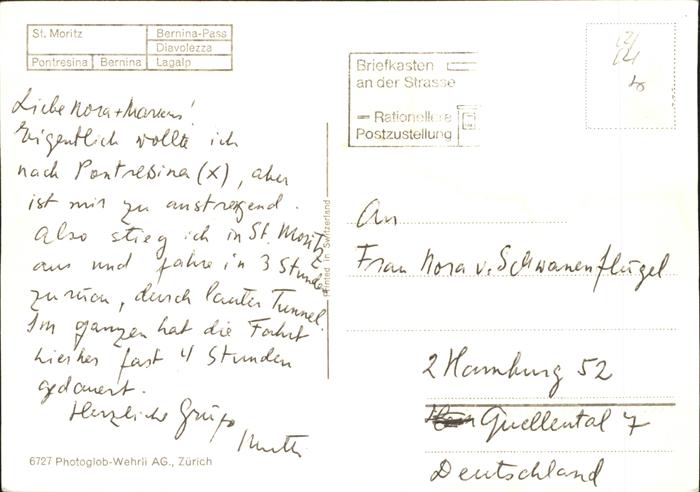 St. Moritz
Bernina-Pass
Diavolezza
Pontresina Bernina Lagalp
Briefkasten
an der Strasse
Rationellere
Postzustellung
Liebe Nora + Marcus!
Eigentlich wollte ich
nach Pontresina (X), aber
ist mir zu anstrengend.
Also stieg ich in St. Moritz
aus und fahre in 3 Stunden
zurück, durch lauter Tunnel.
Im ganzen hat die Fahrt
hierher fast 4 Stunden
gedauert.
Herzliche Grüße
Printed in Switzerland
An
Frau Nora v. Schwanenflügel
2 Hamburg 52
Quellental 7
Deutschland
6727 Photoglob-Wehrli AG., Zürich